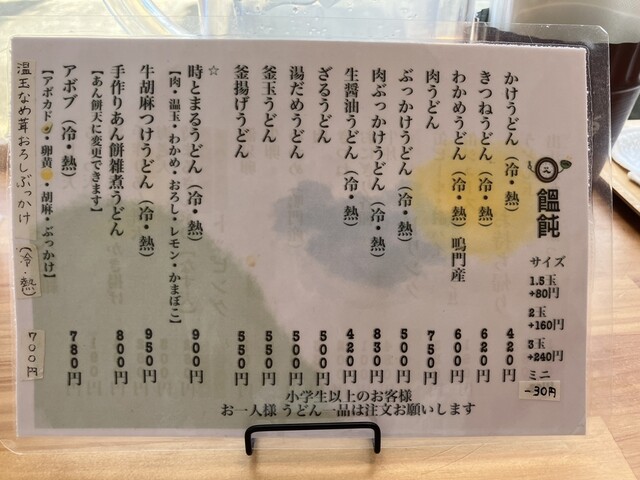 饂飩
サイズ
1.5玉
+80円
2玉
+160円
3玉
+240円
ミニ
-30円
かけうどん（冷・熱） 420円
きつねうどん（冷・熱） 620円
わかめうどん（冷・熱）鳴門産 600円
肉うどん 750円
ぶっかけうどん（冷・熱） 500円
肉ぶっかけうどん（冷・熱） 830円
生醤油うどん（冷・熱） 420円
ざるうどん 500円
湯だめうどん 500円
釜玉うどん 550円
釜揚げうどん 550円
☆
時とまるうどん（冷・熱） 900円
【肉・温玉・わかめ・おろし・レモン・かまぼこ】
牛胡麻つけうどん（冷・熱） 950円
手作りあん餅雑煮うどん 800円
【あん餅天に変更できます】
アボブ（冷・熱） 780円
【アボカド🥑・卵黄🟡・胡麻・ぶっかけ】
温玉なめ茸おろしぶっかけ（冷・熱） 700円
小学生以上のお客様
お一人様 うどん一品は注文お願いします